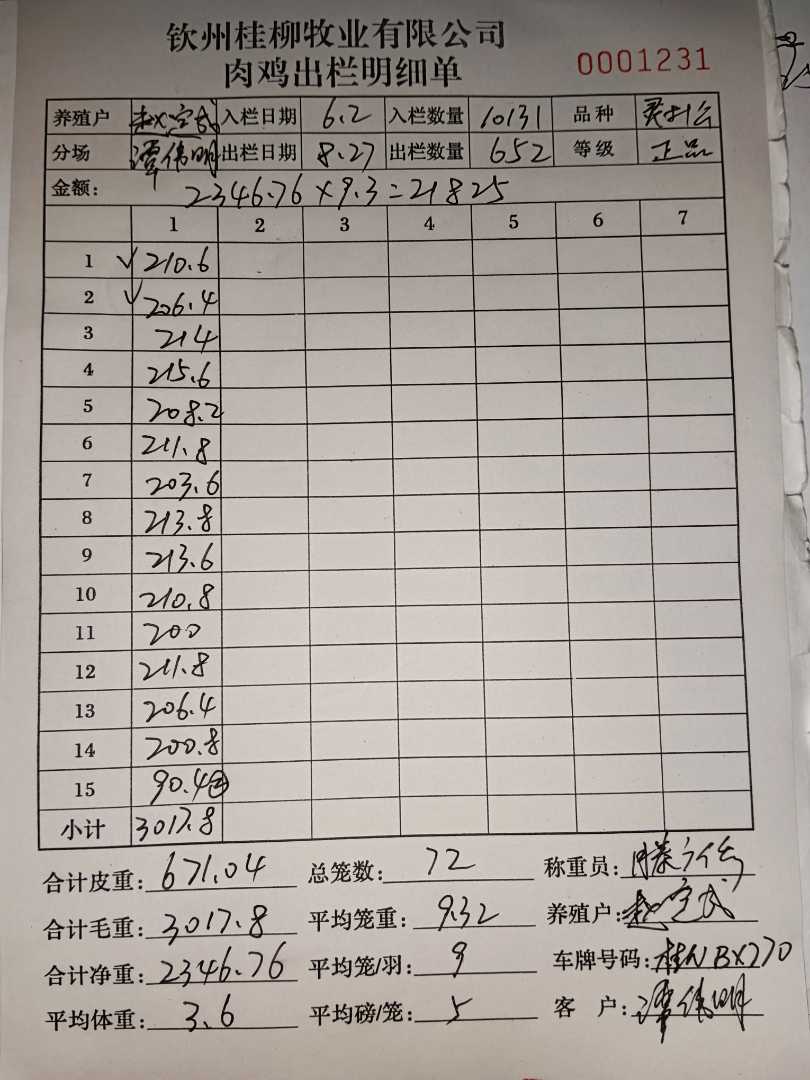 钦州桂柳牧业有限公司
肉鸡出栏明细单 0001231
养殖户 赵定武 入栏日期 6.2 入栏数量 10131 品种
分场 谭伟明 出栏日期 8.27 出栏数量 652 等级 正品
金额: 2346.76×9.3=21825
1 2 3 4 5 6 7
1 √ 210.6
2 √ 206.4
3 214
4 215.6
5 208.2
6 211.8
7 203.6
8 213.8
9 213.6
10 210.8
11 200
12 211.8
13 206.4
14 200.8
15 90.4②
小计 3017.8
合计皮重: 671.04 总笼数: 72 称重员:
合计毛重: 3017.8 平均笼重: 9.32 养殖户: 赵定武
合计净重: 2346.76 平均笼/羽: 9 车牌号码: 桂N BX770
平均体重: 3.6 平均磅/笼: 5 客 户: 谭伟明